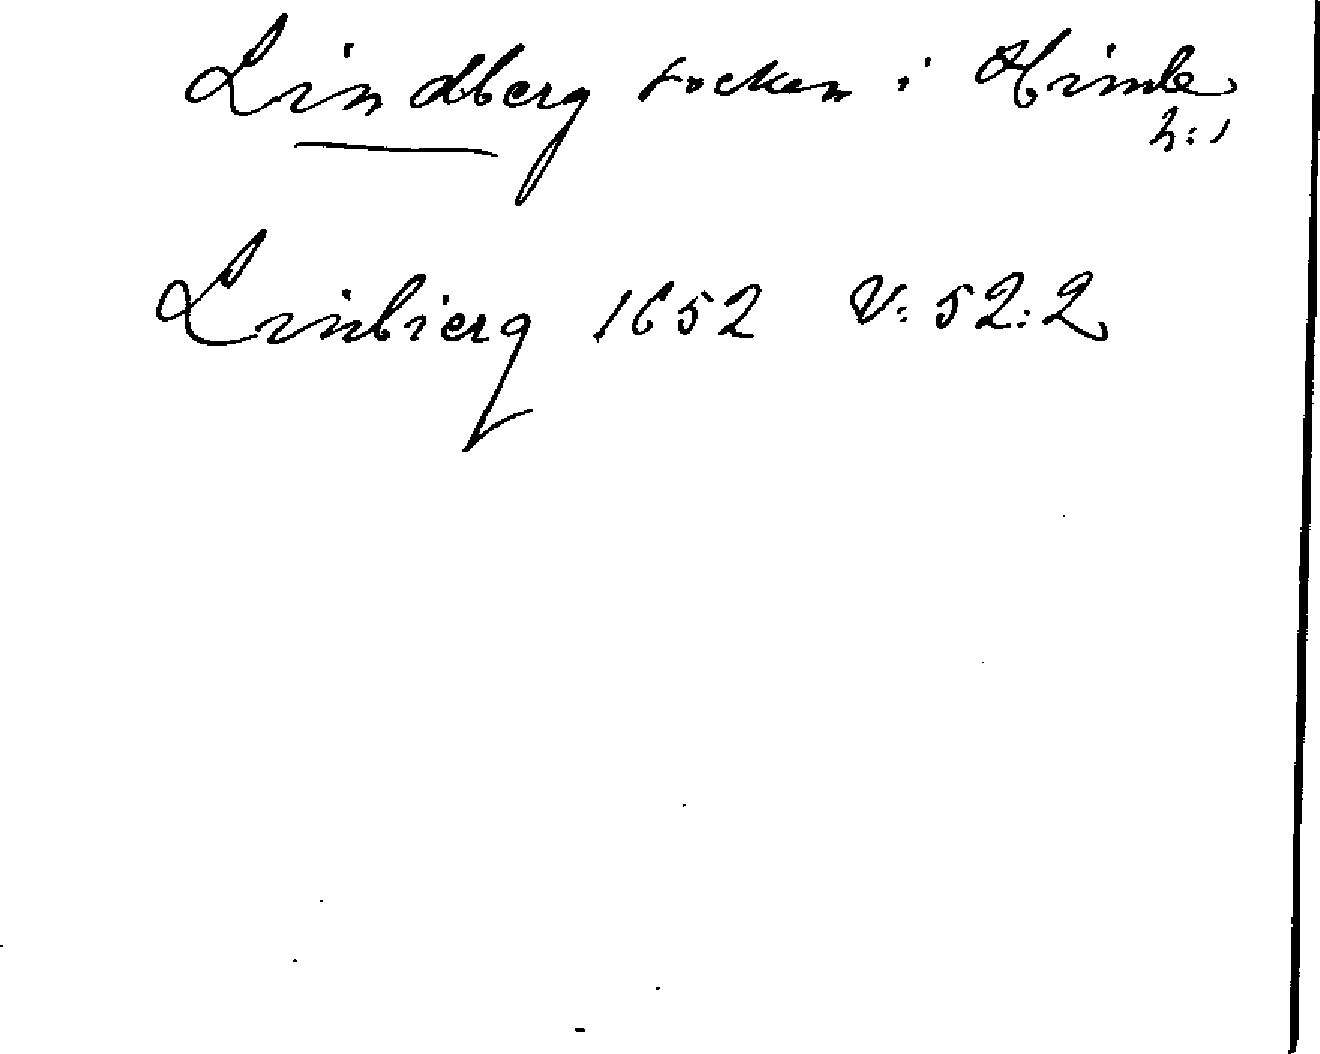 Lindberg socken i Himle
h:d
Linbierg 1652 V: 52:2